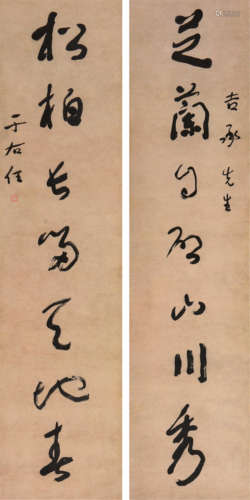 芝蘭自發山川秀
吉承先生
松柏長留天地春
于右任